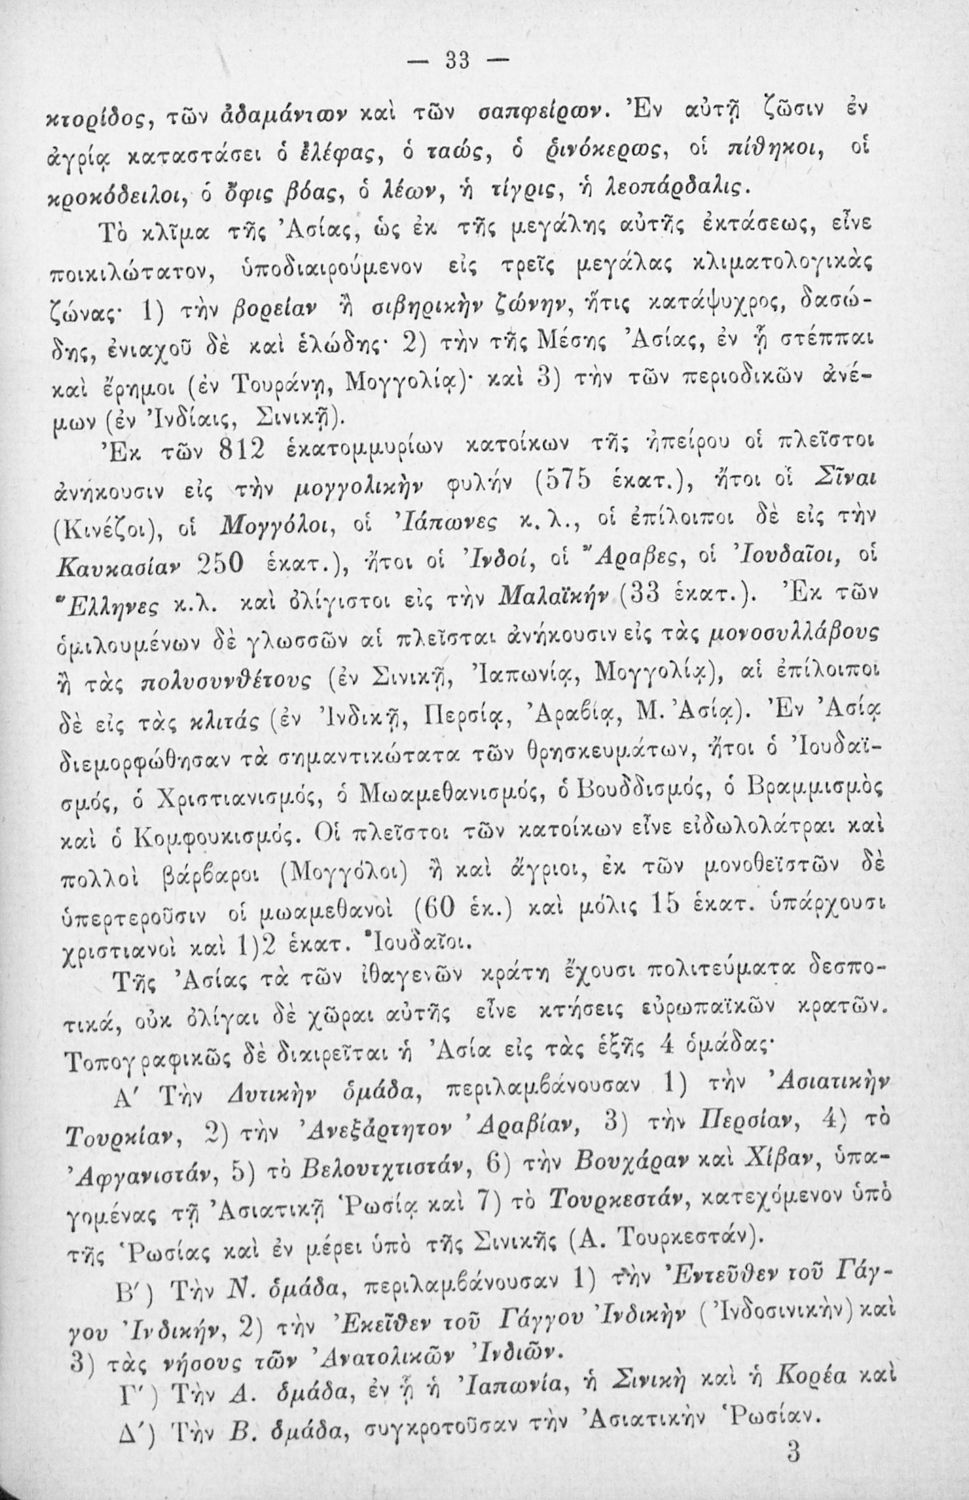 — 33 —
κτορίδος, τῶν ἀδαμάντων καὶ τῶν σαπφείρων. Ἐν αὐτῇ ζῶσιν ἐν
ἀγρίᾳ καταστάσει ὁ ἐλέφας, ὁ ταώς, ὁ ῥινόκερως, οἱ πίθηκοι, οἱ
κροκόδειλοι, ὁ ὄφις βόας, ὁ λέων, ἡ τίγρις, ἡ λεοπάρδαλις.
Τὸ κλῖμα τῆς Ἀσίας, ὡς ἐκ τῆς μεγάλης αὐτῆς ἐκτάσεως, εἶνε
ποικιλώτατον, ὑποδιαιρούμενον εἰς τρεῖς μεγάλας κλιματολογικὰς
ζώνας· 1) τὴν βορείαν ἢ σιβηρικὴν ζώνην, ἥτις κατάψυχρος, δασώ-
δης, ἐνιαχοῦ δὲ καὶ ἑλώδης· 2) τὴν τῆς Μέσης Ἀσίας, ἐν ᾗ στέππαι
καὶ ἔρημοι (ἐν Τουράνῃ, Μογγολίᾳ)· καὶ 3) τὴν τῶν περιοδικῶν ἀνέ-
μων (ἐν Ἰνδίαις, Σινικῇ).
Ἐκ τῶν 812 ἑκατομμυρίων κατοίκων τῆς ἠπείρου οἱ πλεῖστοι
ἀνήκουσιν εἰς τὴν μογγολικὴν φυλήν (575 ἑκατ.), ἤτοι οἱ Σῖναι
(Κινέζοι), οἱ Μογγόλοι, οἱ Ἰάπωνες κ.λ., οἱ ἐπίλοιποι δὲ εἰς τὴν
Καυκασίαν 250 ἑκατ.), ἤτοι οἱ Ἰνδοί, οἱ Ἄραβες, οἱ Ἰουδαῖοι, οἱ
Ἕλληνες κ.λ. καὶ ὀλίγιστοι εἰς τὴν Μαλαϊκήν (33 ἑκατ.). Ἐκ τῶν
ὁμιλουμένων δὲ γλωσσῶν αἱ πλεῖσται ἀνήκουσιν εἰς τὰς μονοσυλλάβους
ἢ τὰς πολυσυνθέτους (ἐν Σινικῇ, Ἰαπωνίᾳ, Μογγολίᾳ), αἱ ἐπίλοιποι
δὲ εἰς τὰς κλιτάς (ἐν Ἰνδικῇ, Περσίᾳ, Ἀραβίᾳ, Μ. Ἀσίᾳ). Ἐν Ἀσίᾳ
διεμορφώθησαν τὰ σημαντικώτατα τῶν θρησκευμάτων, ἤτοι ὁ Ἰουδαϊ-
σμός, ὁ Χριστιανισμός, ὁ Μωαμεθανισμός, ὁ Βουδδισμός, ὁ Βραμμισμὸς
καὶ ὁ Κομφουκισμός. Οἱ πλεῖστοι τῶν κατοίκων εἶνε εἰδωλολάτραι καὶ
πολλοὶ βάρβαροι (Μογγόλοι) ἢ καὶ ἄγριοι, ἐκ τῶν μονοθεϊστῶν δὲ
ὑπερτεροῦσιν οἱ μωαμεθανοὶ (60 ἑκ.) καὶ μόλις 15 ἑκατ. ὑπάρχουσι
χριστιανοὶ καὶ 1)2 ἑκατ. Ἰουδαῖοι.
Τῆς Ἀσίας τὰ τῶν ἰθαγενῶν κράτη ἔχουσι πολιτεύματα δεσπο-
τικά, οὐκ ὀλίγαι δὲ χῶραι αὐτῆς εἶνε κτήσεις εὐρωπαϊκῶν κρατῶν.
Τοπογραφικῶς δὲ διαιρεῖται ἡ Ἀσία εἰς τὰς ἑξῆς 4 ὁμάδας·
Α′ Τὴν Δυτικὴν ὁμάδα, περιλαμβάνουσαν 1) τὴν Ἀσιατικὴν
Τουρκίαν, 2) τὴν Ἀνεξάρτητον Ἀραβίαν, 3) τὴν Περσίαν, 4) τὸ
Ἀφγανιστάν, 5) τὸ Βελουτχτιστάν, 6) τὴν Βουχάραν καὶ Χίβαν, ὑπα-
γομένας τῇ Ἀσιατικῇ Ῥωσίᾳ καὶ 7) τὸ Τουρκεστάν, κατεχόμενον ὑπὸ
τῆς Ῥωσίας καὶ ἐν μέρει ὑπὸ τῆς Σινικῆς (Α. Τουρκεστάν).
Β′) Τὴν Ν. ὁμάδα, περιλαμβάνουσαν 1) τὴν Ἐντεῦθεν τοῦ Γάγ-
γου Ἰνδικήν, 2) τὴν Ἐκεῖθεν τοῦ Γάγγου Ἰνδικὴν (Ἰνδοσινικὴν) καὶ
3) τὰς νήσους τῶν Ἀνατολικῶν Ἰνδιῶν.
Γ′) Τὴν Α. ὁμάδα, ἐν ᾗ ἡ Ἰαπωνία, ἡ Σινικὴ καὶ ἡ Κορέα καὶ
Δ′) Τὴν Β. ὁμάδα, συγκροτοῦσαν τὴν Ἀσιατικὴν Ῥωσίαν.
3